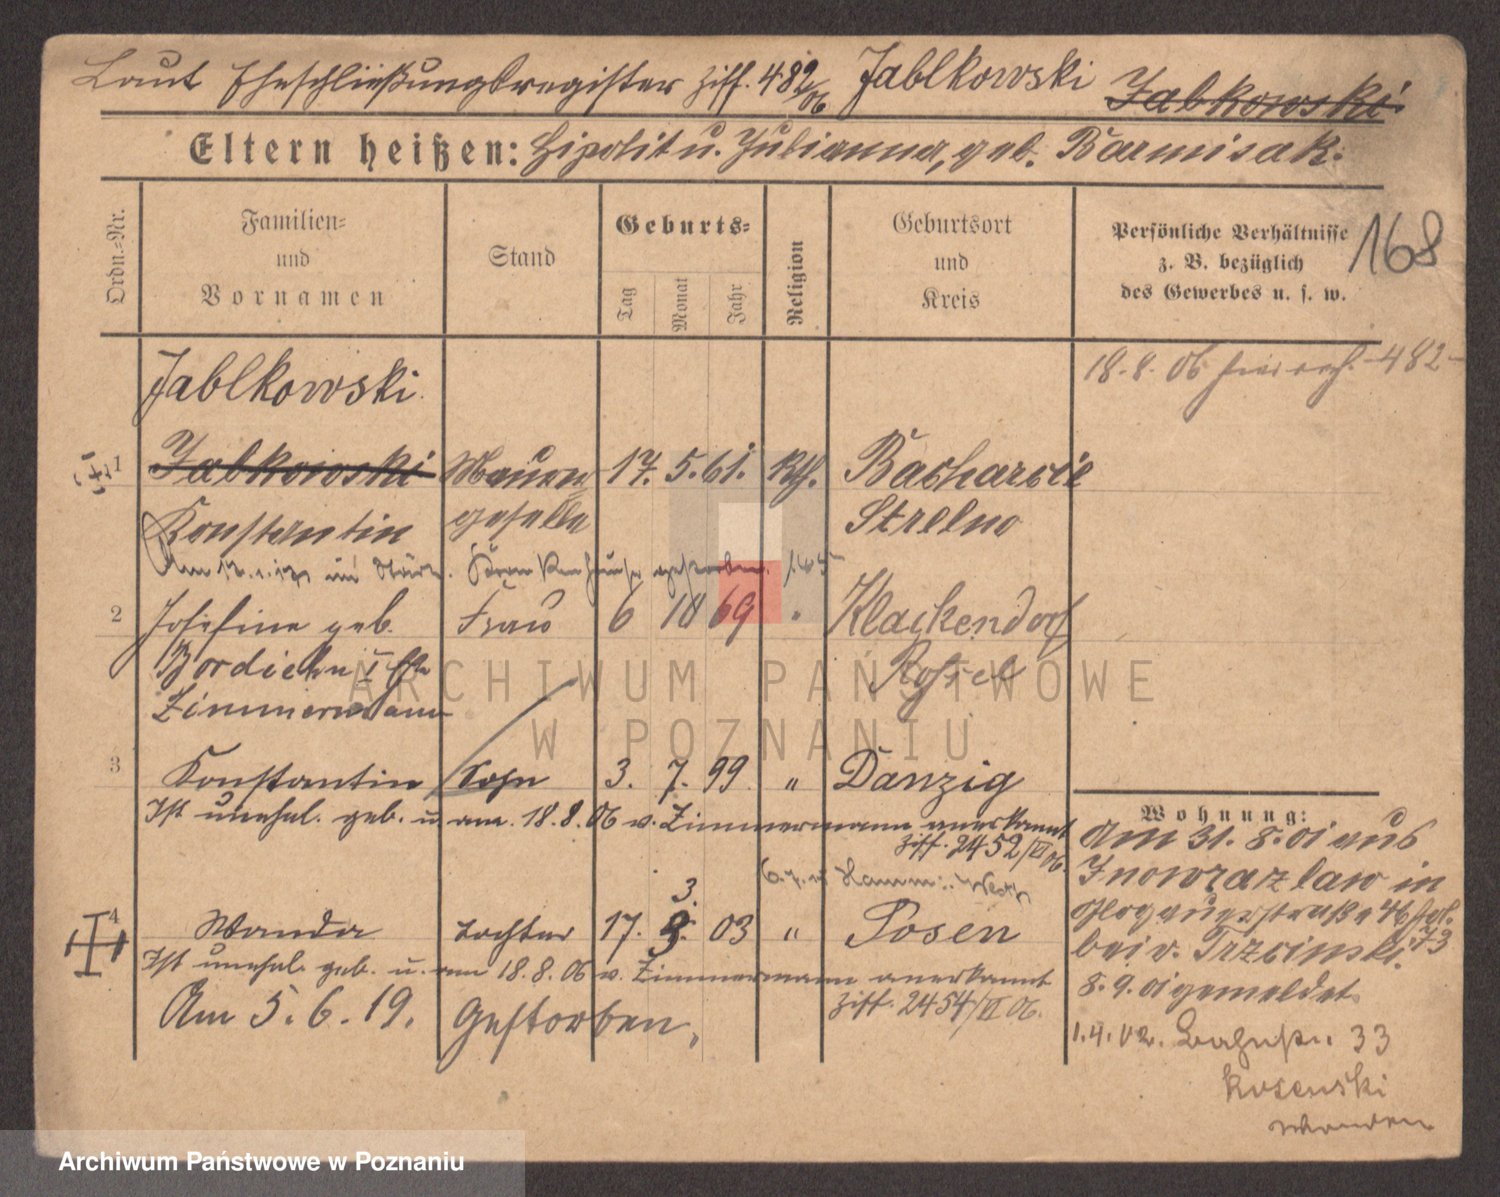 Laut Eheschließungsregister Ziff. 482/06 Jablkowski Jabkowski
Eltern heißen: Hipolit u. Julianna, geb. Barmisak.
Ordn.-Nr.
Familien- und Vornamen
Stand
Geburts-
Tag Monat Jahr
Religion
Geburtsort und Kreis
Persönliche Verhältnisse
z. B. bezüglich
des Gewerbes u. s. w.
168
18.8.06 482
Jablkowski.
1 Jabkowski Maurer 17. 5. 61. Kth. Bacharcie
Konstantin geselle Strelno
Am im Krankenhause gestorben.
2 Josefine geb. Frau 6 10 69 " Klackendorf
Bordiehn I Ehe Rössel
Zimmermann
3 Konstantin Sohn 3. 7. 99 " Danzig
Ist unehel. geb. u. am 18.8.06 v. Zimmermann anerkannt
Ziff. 2452/VI 06.
Hamm: Westf
3.
4 Wanda Tochter 17. 03 " Posen
Ist unehel. geb. u. am 18.8.06 v. Zimmermann anerkannt
Ziff. 2454/VI 06.
Am 5.6.19. Gestorben.
Wohnung:
Am 31.8.01 aus
Inowrazlaw in
Glogauerstraße 46
bei v. Trzcinski. 73
8.9.01 gemeldet.
1.4.02. 33
ARCHIWUM PAŃSTWOWE
W POZNANIU
Archiwum Państwowe w Poznaniu